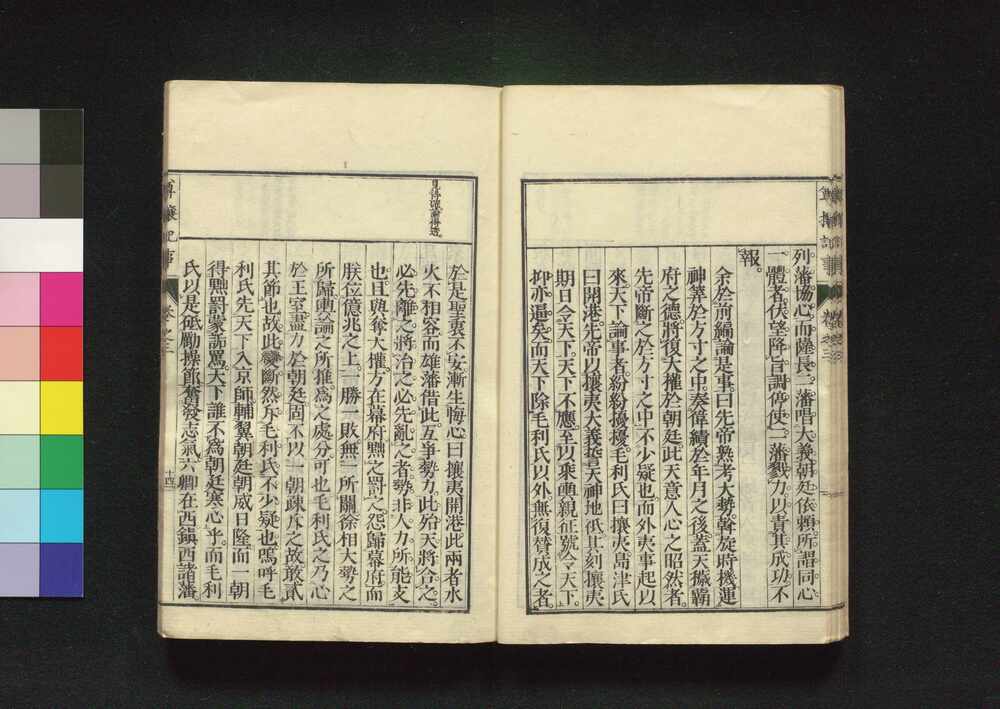 列藩協心而薩長二藩唱大義朝廷依賴所謂同心
一體者伏望降旨調停使二藩戮力以責其成功不
報。
余於前編論是事曰先帝熟考大勢斡旋時機運
神筭於方寸之中奏偉績於年月之後蓋天穢覇
府之德將復大權於朝廷此天意人心之昭然者
先帝斷之於方寸之中不少疑也而外夷事起以
來天下論事者紛紛擾擾毛利氏曰攘夷島津氏
曰開港先帝以攘夷大義誓天神地祇其刻攘夷
期日令天下天下不應至以乘輿親征號令天下
抑亦逼矣而天下除毛利氏以外無復賛成之者
於是聖衷不安漸生悔心曰攘夷開港此兩者水
火不相容而雄藩借此互爭勢力此殆天將合之
必先離之將治之必先亂之者勢非人力所能支
也且與奪大權方在幕府黜之罰之怨歸幕府而
朕位億兆之上一勝一敗無一所關徐相大勢之
所歸輿論之所推爲之處分可也毛利氏之乃心
於王室盡力於朝廷固不以一朝疎斥之故敢貳
其節也故此斷然斥毛利氏不少疑也嗚呼毛
利氏先天下入京師輔翼朝廷朝威日隆而一朝
得黜罰蒙詬罵天下誰不爲朝廷寒心乎而毛利
氏以是砥勵操節奮發志氣六卿在西鎮西諸藩
尊攘紀事
卷之三
十四